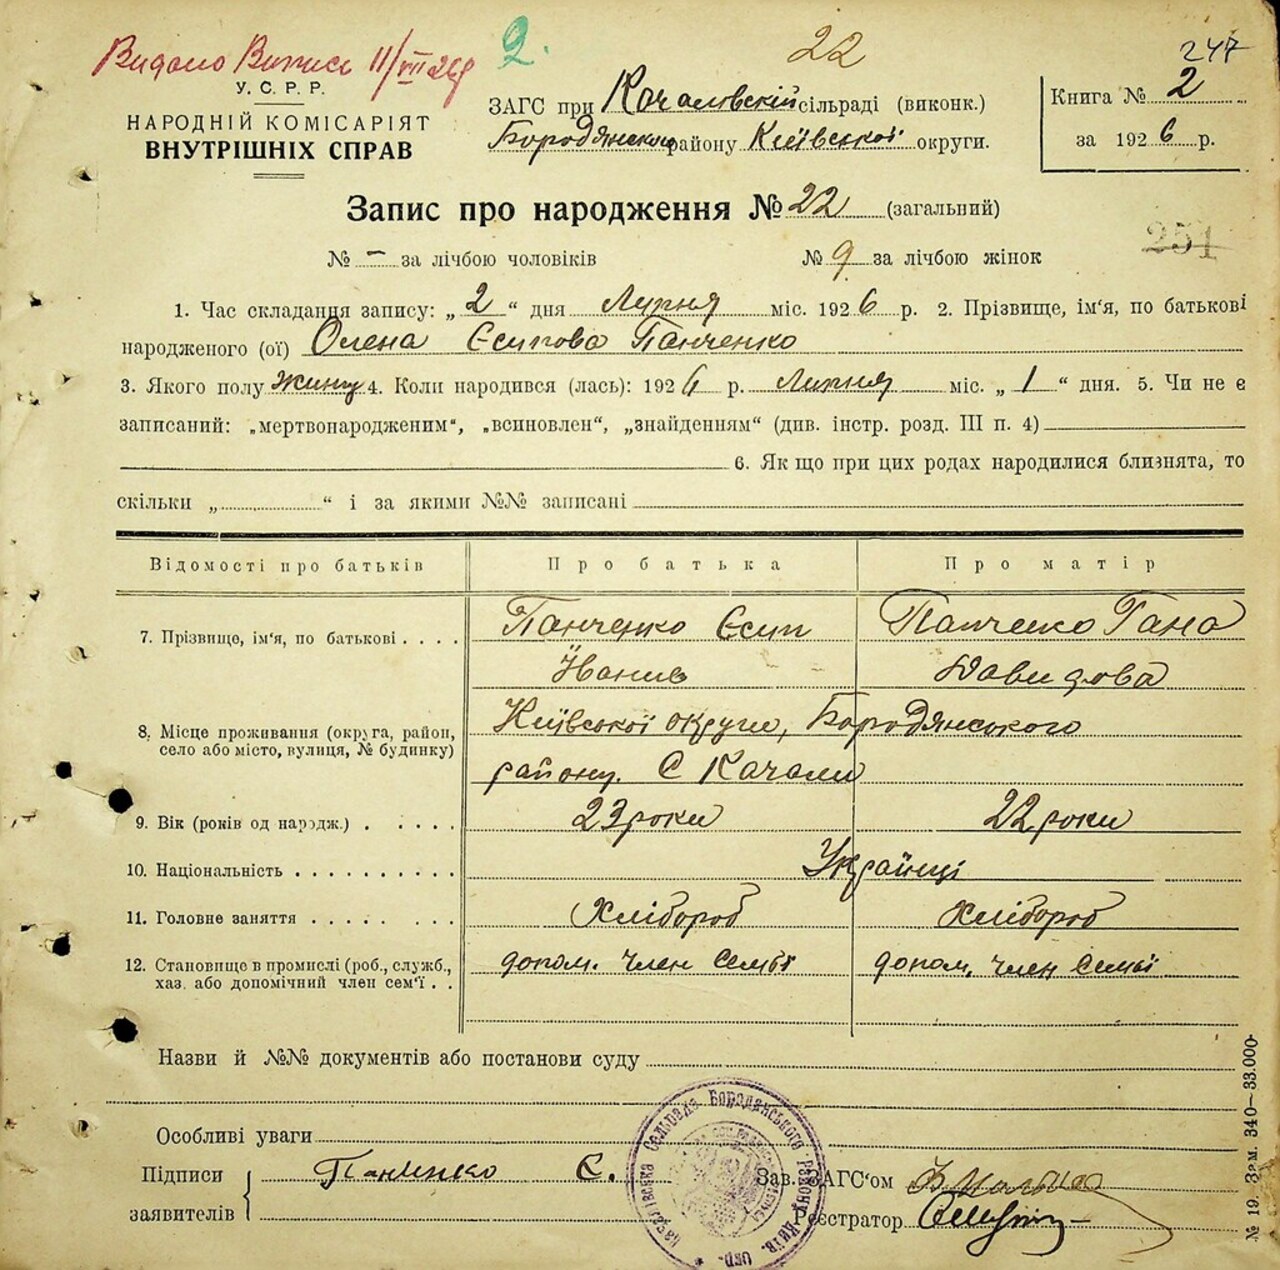 Видано Випись 11/VII 26р
2.
22
247
У. С. Р. Р.
НАРОДНІЙ КОМІСАРІЯТ
ВНУТРІШНІХ СПРАВ
ЗАГС при Качаловскій сільраді (виконк.)
Бородянского району Київської округи.
Книга № 2
за 1926 р.
Запис про народження № 22 (загальний)
251
№ – за лічбою чоловіків № 9 за лічбою жінок
1. Час складання запису: „ 2 “ дня Липня міс. 1926 р. 2. Прізвище, ім‘я, по батькові
народженого (ої) Олена Єсипова Панченко
3. Якого полу жиноч 4. Коли народився (лась): 1926 р. Липня міс. „ 1 “ дня. 5. Чи не є
записаний: „мертвонародженим“, „всиновлен“, „знайденням“ (див. інстр. розд. III п. 4)
6. Як що при цих родах народилися близнята, то
скільки „ “ і за якими №№ записані
Відомості про батьків Про батька Про матір
7. Прізвище, ім‘я, по батькові Панченко Єсип Панченко Гана
Іванів Давидова
8. Місце проживання (округа, район, село або місто, вулиця, № будинку) Київської округи, Бородянського
району. С Качали
9. Вік (років од народж.) 23 роки 22 роки
10. Національність Українці
11. Головне заняття Хлібороб Хлібороб
12. Становище в промислі (роб., служб., допом. член семьї допом. член семьї
хаз. або допомічний член сем‘ї
Назви й №№ документів або постанови суду
Особливі уваги
Підписи заявителів Панченко Є.
Зав. ЗАГС‘ом
Реєстратор
Сельрада Бородянського Району Київ. окр.
№ 19. Зам. 340—33.000